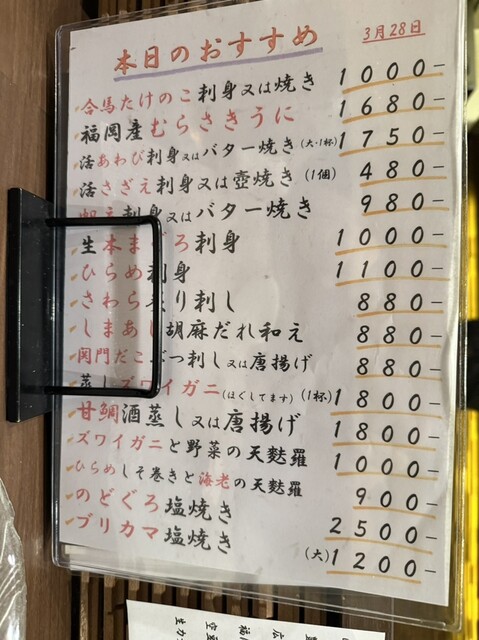 本日のおすすめ 3月28日
合馬たけのこ刺身又は焼き 1000-
福岡産むらさきうに 1680-
活あわび刺身又はバター焼き(大・1杯) 1750-
活さざえ刺身又は壺焼き(1個) 480-
刺身又はバター焼き 980-
生本まぐろ刺身 1000-
ひらめ刺身 1100-
さわら炙り刺し 880-
しまあじ胡麻だれ和え 880-
関門だこぶつ刺し又は唐揚げ 880-
蒸しズワイガニ(ほぐしてます)(1杯) 1800-
甘鯛酒蒸し又は唐揚げ 1800-
ズワイガニと野菜の天麩羅 1000-
ひらめしそ巻きと海老の天麩羅 900-
のどぐろ塩焼き 2500-
ブリカマ塩焼き (大)1200-